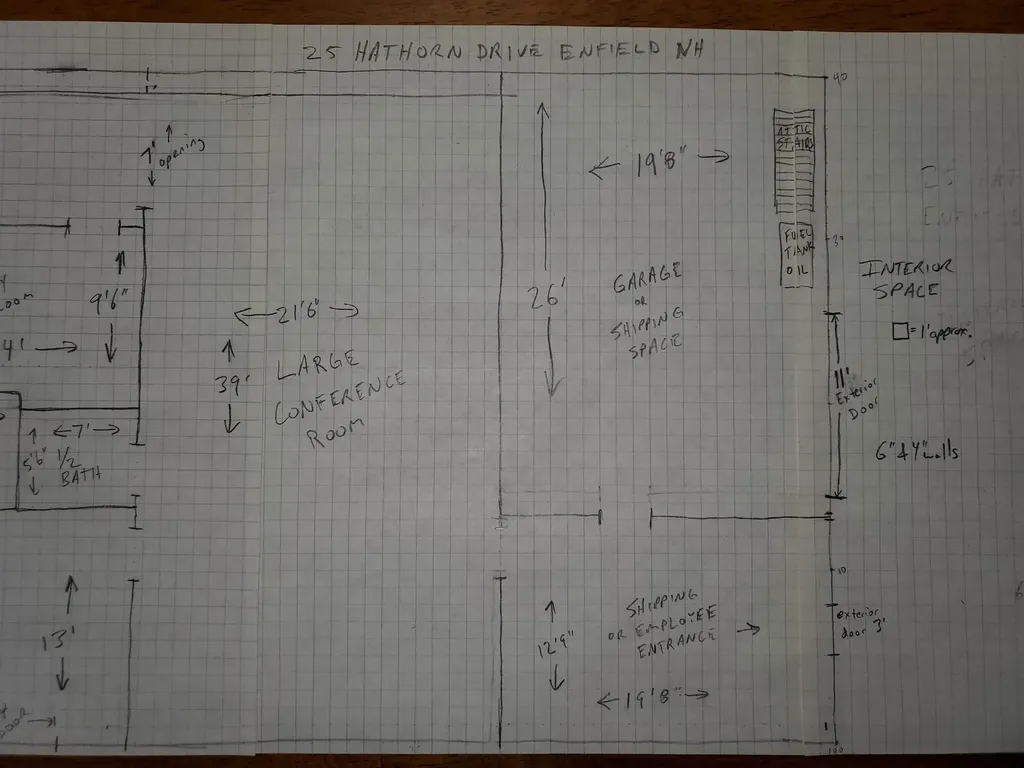 25 HATHORN DRIVE ENFIELD NH
40
7'
opening
19'8"
ATTIC
STAIRS
30
FUEL
TANK
OIL
INTERIOR
SPACE
□ = 1' approx.
9'6"
4'
21'6"
26'
GARAGE
OR
SHIPPING
SPACE
39'
LARGE
CONFERENCE
ROOM
11'
Exterior
Door
6" & 4" walls
7'
5'6"
1/2
BATH
10
13'
12'9"
SHIPPING
OR EMPLOYEE
ENTRANCE
exterior
door 3'
19'8"
1
100